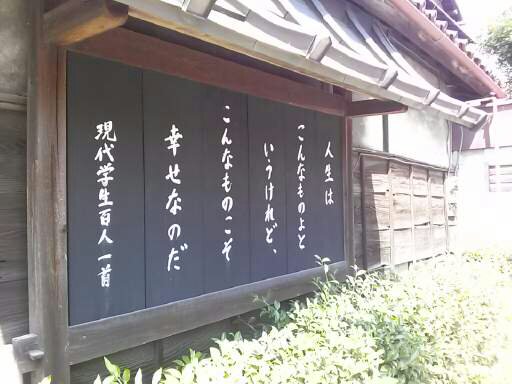 人生は
こんなものよと
いうけれど、
こんなものこそ
幸せなのだ
現代学生百人一首